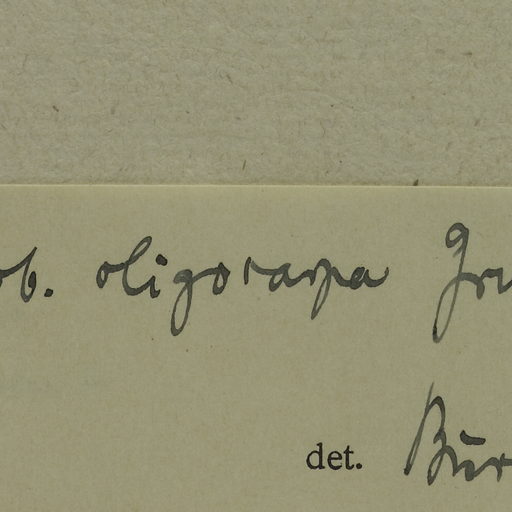 ob. oligocarpa Gru
det. Bur